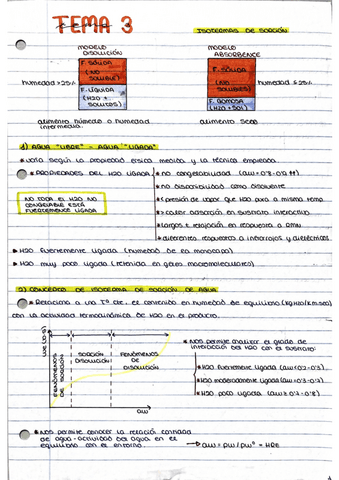 TEMA 3
ISOTERMAS DE SORCIÓN
MODELO DISOLUCIÓN
F. SÓLIDA (NO SOLUBLE)
F. LÍQUIDA (H2O + SOLUTOS)
humedad >25%
alimento húmedo o humedad intermedia.
MODELO ABSORBENCE
F. SÓLIDA (NO SOLUBLE)
F. GOMOSA (H2O+SOL)
humedad ≤25%
alimento seco
1) AGUA "LIBRE" - AGUA "LIGADA"
* varía según la propiedad física medida y la técnica empleada.
* PROPIEDADES DEL H2O LIGADA
* no congelabilidad
* no disponibilidad como disolvente
* < presión de vapor que H2O pura a misma temp.
* > calor adsorción en sustrato interactivo
* < largos t relajación en respuesta a RMN
* diferentes respuestas a infrarrojos y dieléctricos.
NO TODA EL H2O NO CONGELABLE ESTÁ FUERTEMENTE LIGADA
→ H2O fuertemente ligada (humedad de la monocapa)
→ H2O muy poco ligada (retenida en geles macromoleculares)
2) CONCEPTO DE ISOTERMA DE SORCIÓN DE AGUA
* Relaciona a una Tª cte. el contenido en humedad de equilibrio (kg H2O/kg m.seco)
con la actividad termodinámica de H2O en el producto.
FENÓMENOS DE SORCIÓN
SORCIÓN DISOLUCIÓN
FENÓMENOS DE DISOLUCIÓN
aw
* Nos permite analizar el grado de interacción del H2O con el sustrato:
* H2O fuertemente ligada (aw<0.2-0.3)
* H2O moderadamente ligada
* H2O poco ligada
* Nos permite conocer la relación cantidad de agua - actividad del agua en el equilibrio con el entorno.
→ aw = pw/pwº = HRe